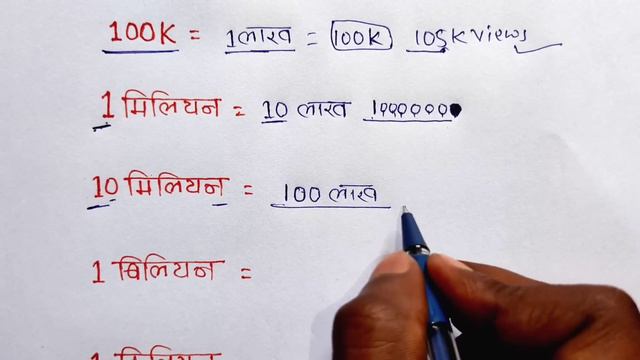 100K = 1 लाख = 100K 105K views
1 मिलियन = 10 लाख 1000000
10 मिलियन = 100 लाख
1 बिलियन =